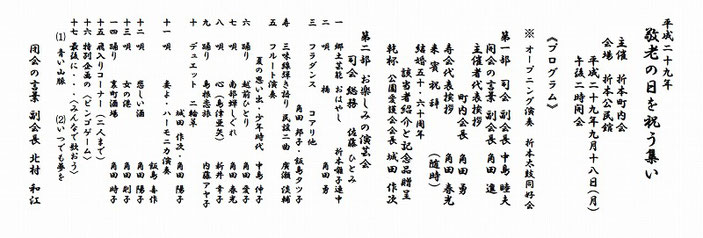 平成二十九年
敬老の日を祝う集い
主催 折本町内会
会場 折本公民館
平成二十九年九月十八日(月)
午後二時開会
《プログラム》
※ オープニング演奏 折本太鼓同好会
第一部 司会 副会長 中島 睦夫
開会の言葉 副会長 角田 進
主催者代表挨拶
町内会長 角田 勇
寿会代表挨拶 角田 春光
来賓祝辞 (随時)
結婚五十・六十周年
該当者紹介と記念品贈呈
乾杯 公園愛護会会長 城田 作次
第二部 お楽しみの演芸会
司会 総務 佐藤 ひとみ
一 郷土芸能 おはやし 折本囃子連中
二 唄 橋 角田 勇
三 フラダンス コアリ他
角田 邦子・飯島タツ子
寿 三味線弾き語り 民謡二曲 廣瀬 淡輔
五 フルート演奏
夏の思い出・少年時代 中島 仲子
六 踊り 越前ひとり 角田 愛子
七 唄 南部蝉しぐれ 角田 春光
八 唄 心(島津亜矢) 新井 幸子
九 踊り 島根恋旅 内藤アヤ子
十 デュエット 二輪草
城田 作次・角田 陽子
十一 唄 妻よ・ハーモニカ演奏
飯島 喜作
十二 唄 悲しい酒 角田 陽子
十三 唄 女の港 角田 則子
十四 踊り 裏町酒場 角田 時子
十五 飛入りコーナー(二人まで)
十六 特別企画の(ビンゴゲーム)
十七 最後に・・・(みんなで歌おう)
(1) 青い山脈 (2)いつでも夢を
閉会の言葉 副会長 北村 和江